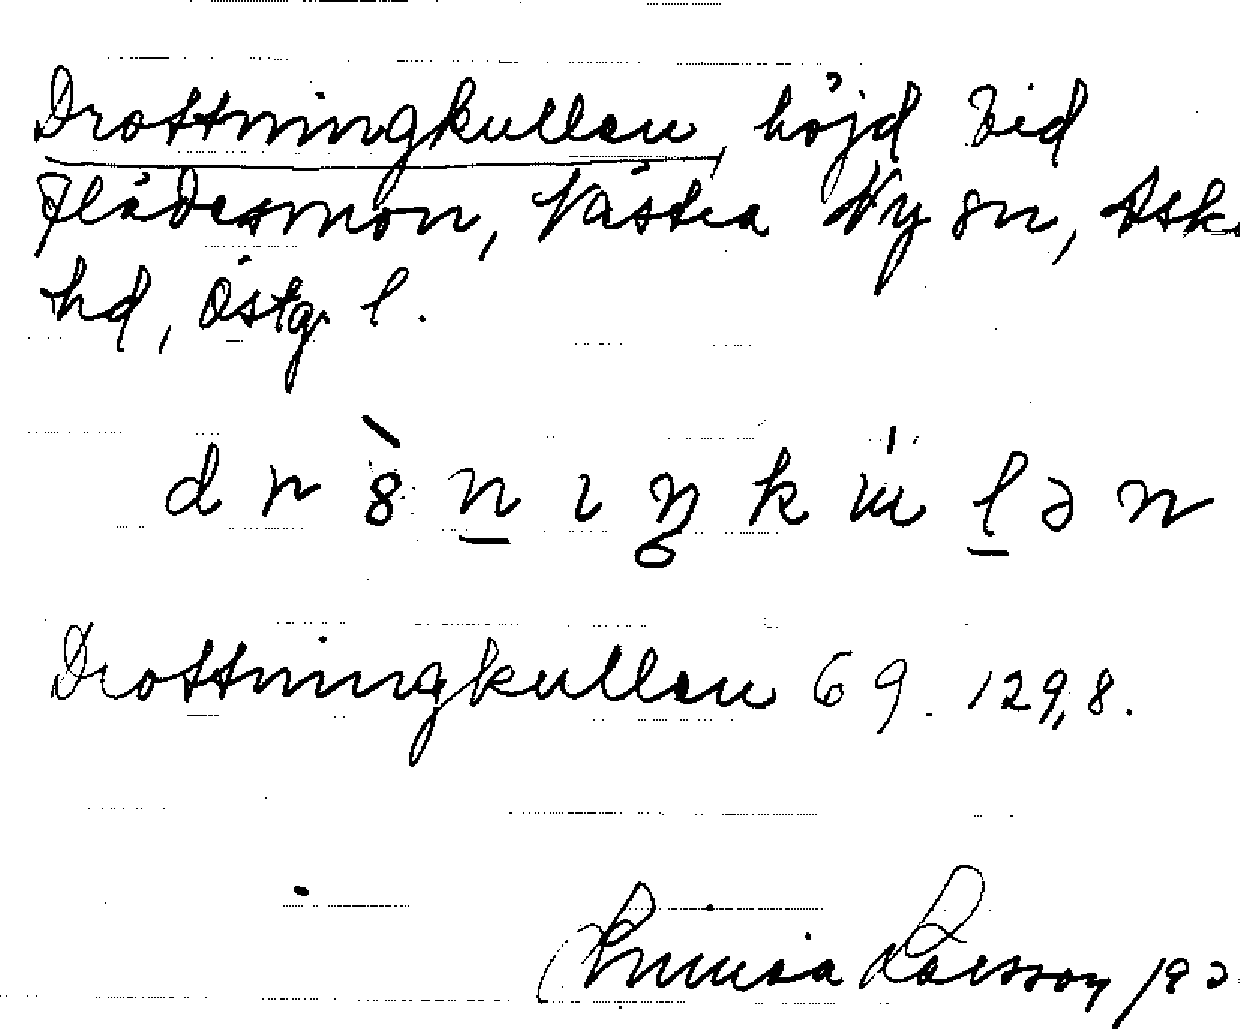 Drottningkullen, höjd vid
Flädermon, Västra Ny sn, Ask.
hd, Östg. l.
Drottningkullen 69. 129,8.
Larsson 192